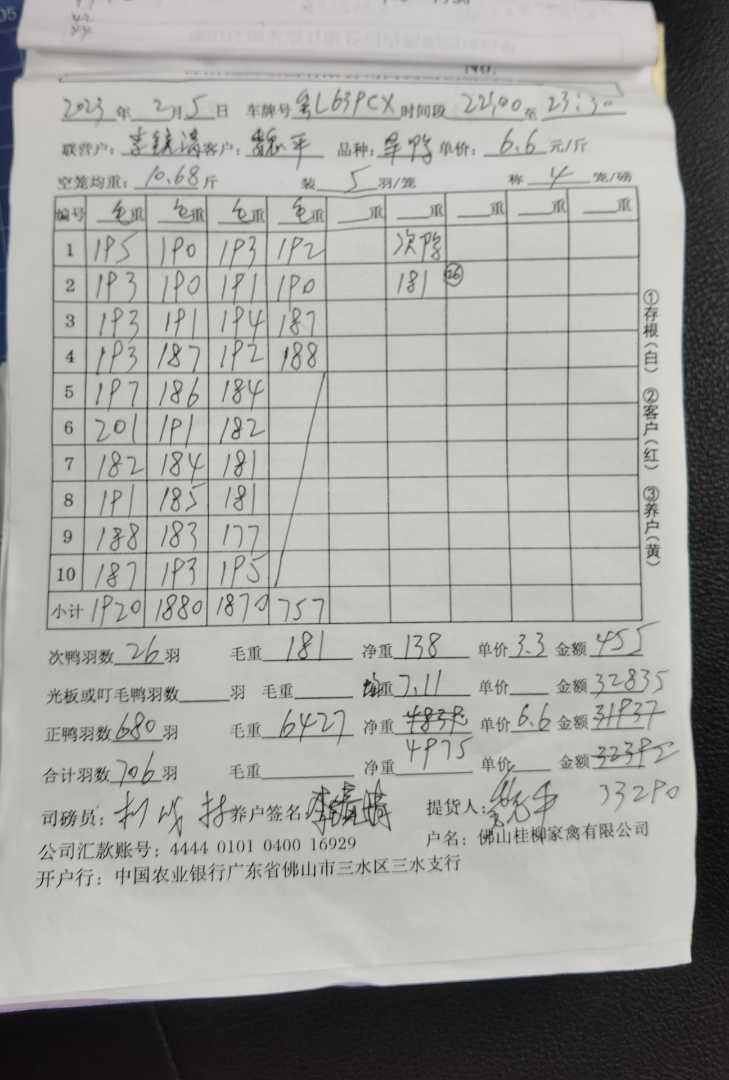 No.
2023 年 2 月 5 日 车牌号 粤L639CX 时间段 22:00 至 23:30
联营户: 李镜清 客户: 平 品种: 旱鸭 单价: 6.6 元/斤
空笼均重: 10.68 斤 装 5 羽/笼 称 4 笼/磅
编号 毛重 毛重 毛重 毛重 重 重 重 重 重
1 195 190 193 192 次鸭
2 193 190 191 190 181 26
3 193 191 194 187
4 193 187 192 188
5 197 186 184
6 201 191 182
7 182 184 181
8 191 185 181
9 188 183 177
10 187 193 195
小计 1920 1880 1870 757
①存根(白) ②客户(红) ③养户(黄)
次鸭羽数 26 羽 毛重 181 净重 138 单价 3.3 金额 455
光板或叮毛鸭羽数 羽 毛重 均重 7.11 单价 金额 32835
正鸭羽数 680 羽 毛重 6427 净重 4839 单价 6.6 金额 31937
4975
合计羽数 706 羽 毛重 净重 单价 金额 32392
33290
司磅员: 养户签名: 李镜晴 提货人: 平
公司汇款账号: 4444 0101 0400 16929 户名: 佛山桂柳家禽有限公司
开户行: 中国农业银行广东省佛山市三水区三水支行